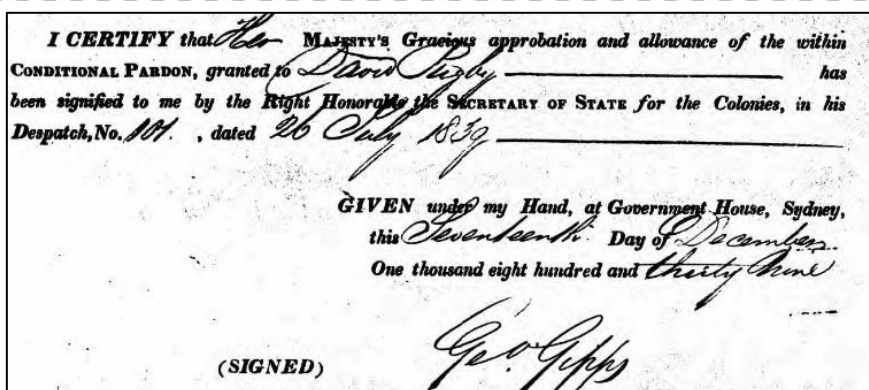 I CERTIFY that Her MAJESTY'S Gracious approbation and allowance of the within
CONDITIONAL PARDON, granted to David Rigby has
been signified to me by the Right Honorable the SECRETARY OF STATE for the Colonies, in his
Despatch, No. 101. , dated 26 July 1839
GIVEN under my Hand, at Government House, Sydney,
this Seventeenth Day of December
One thousand eight hundred and thirty Nine
(SIGNED) Geo. Gipps